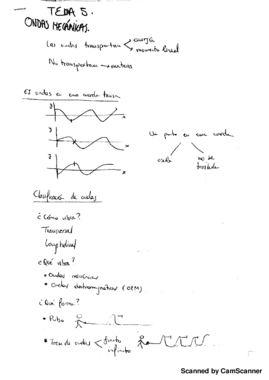 TEMA 5.
ONDAS MECÁNICAS.
Las ondas transportan
energía
momento lineal
No transportan materia
EJ ondas en una cuerda tensa
x
x
x
Un punto en una cuerda
oscila
no se traslada
Clasificación de ondas
¿Cómo vibra?
Transversal
Longitudinal
¿Qué vibra?
• Ondas mecánicas
• Ondas electromagnéticas (OEM)
¿Qué forma?
• Pulso
• Tren de ondas
finito
infinito
Scanned by CamScanner